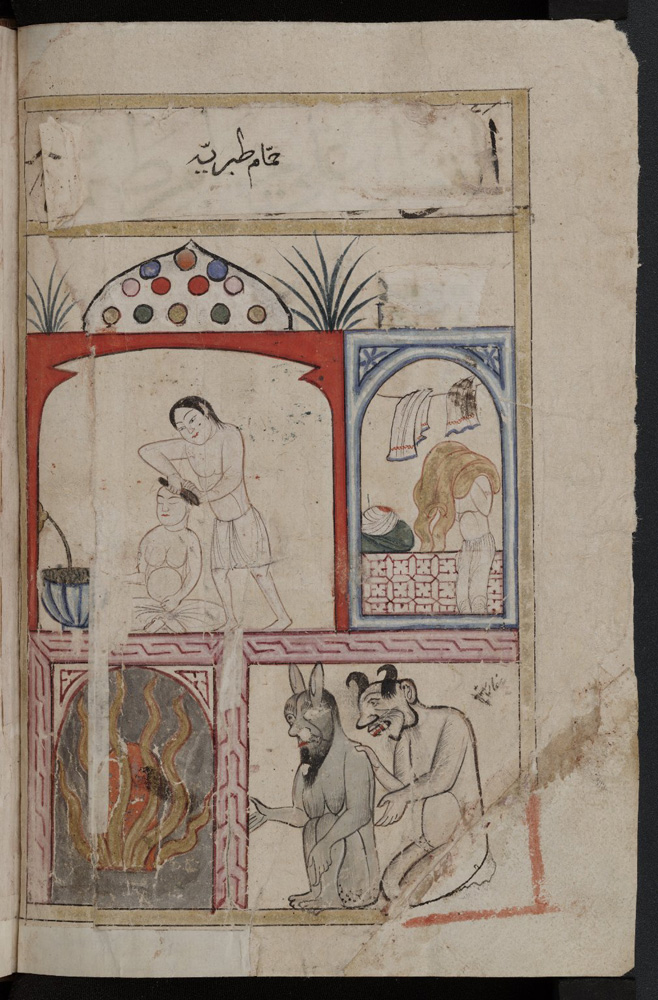 حمّام طبريّه